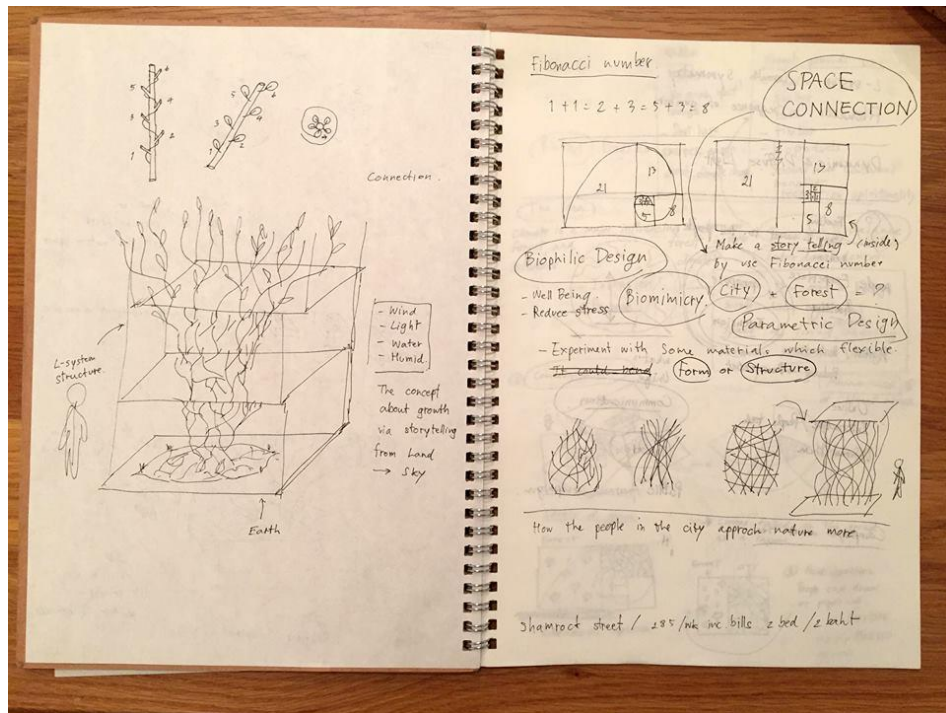 5
6
4
3
2
1
5
6
3
4
1
2
Connection.
L-system
structure.
- Wind
- Light
- Water
- Humid.
The concept
about growth
via storytelling
from Land
→ Sky
Earth
Fibonacci number
SPACE
CONNECTION
1 + 1 = 2 + 3 = 5 + 3 = 8
21
13
5
8
21
13
3
5
8
Make a story telling (inside)
by use Fibonacci number
Biophilic Design
- Well Being
- Reduce stress
Biomimicry
City + Forest = ?
Parametric Design
- Experiment with some materials which flexible.
It could being form or Structure
How the people in the city approch nature more
Shamrock street / 285 /wk inc bills 2 bed / 2